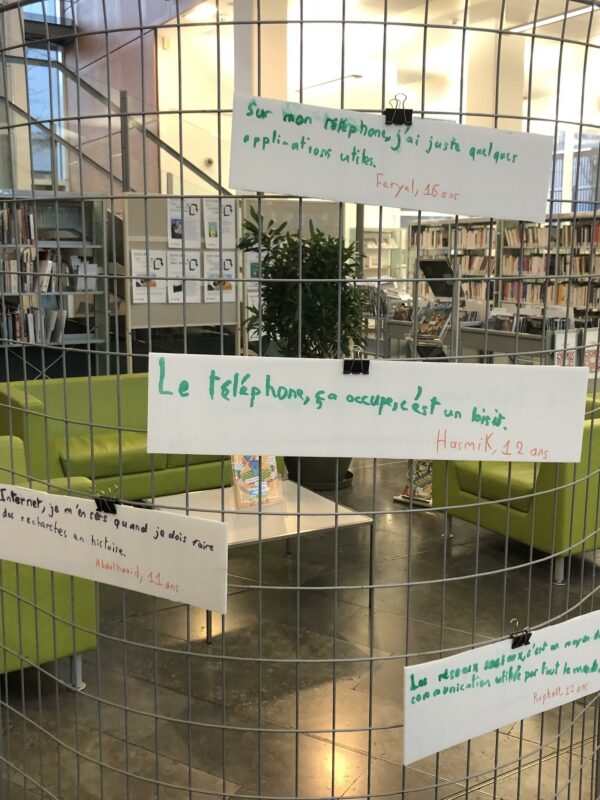 Sur mon téléphone, j'ai juste quelques
applications utiles.
Feryel, 16 ans
Le téléphone, ça occupe, c'est un loisir.
HasmiK, 12 ans
Internet, je m'en sers quand je dois faire
du recherches en histoire.
Abdelhamid, 11 ans
Les réseaux sociaux, c'est un moyen de
communication utilisé par tout le monde,
Raphaël, 12 ans